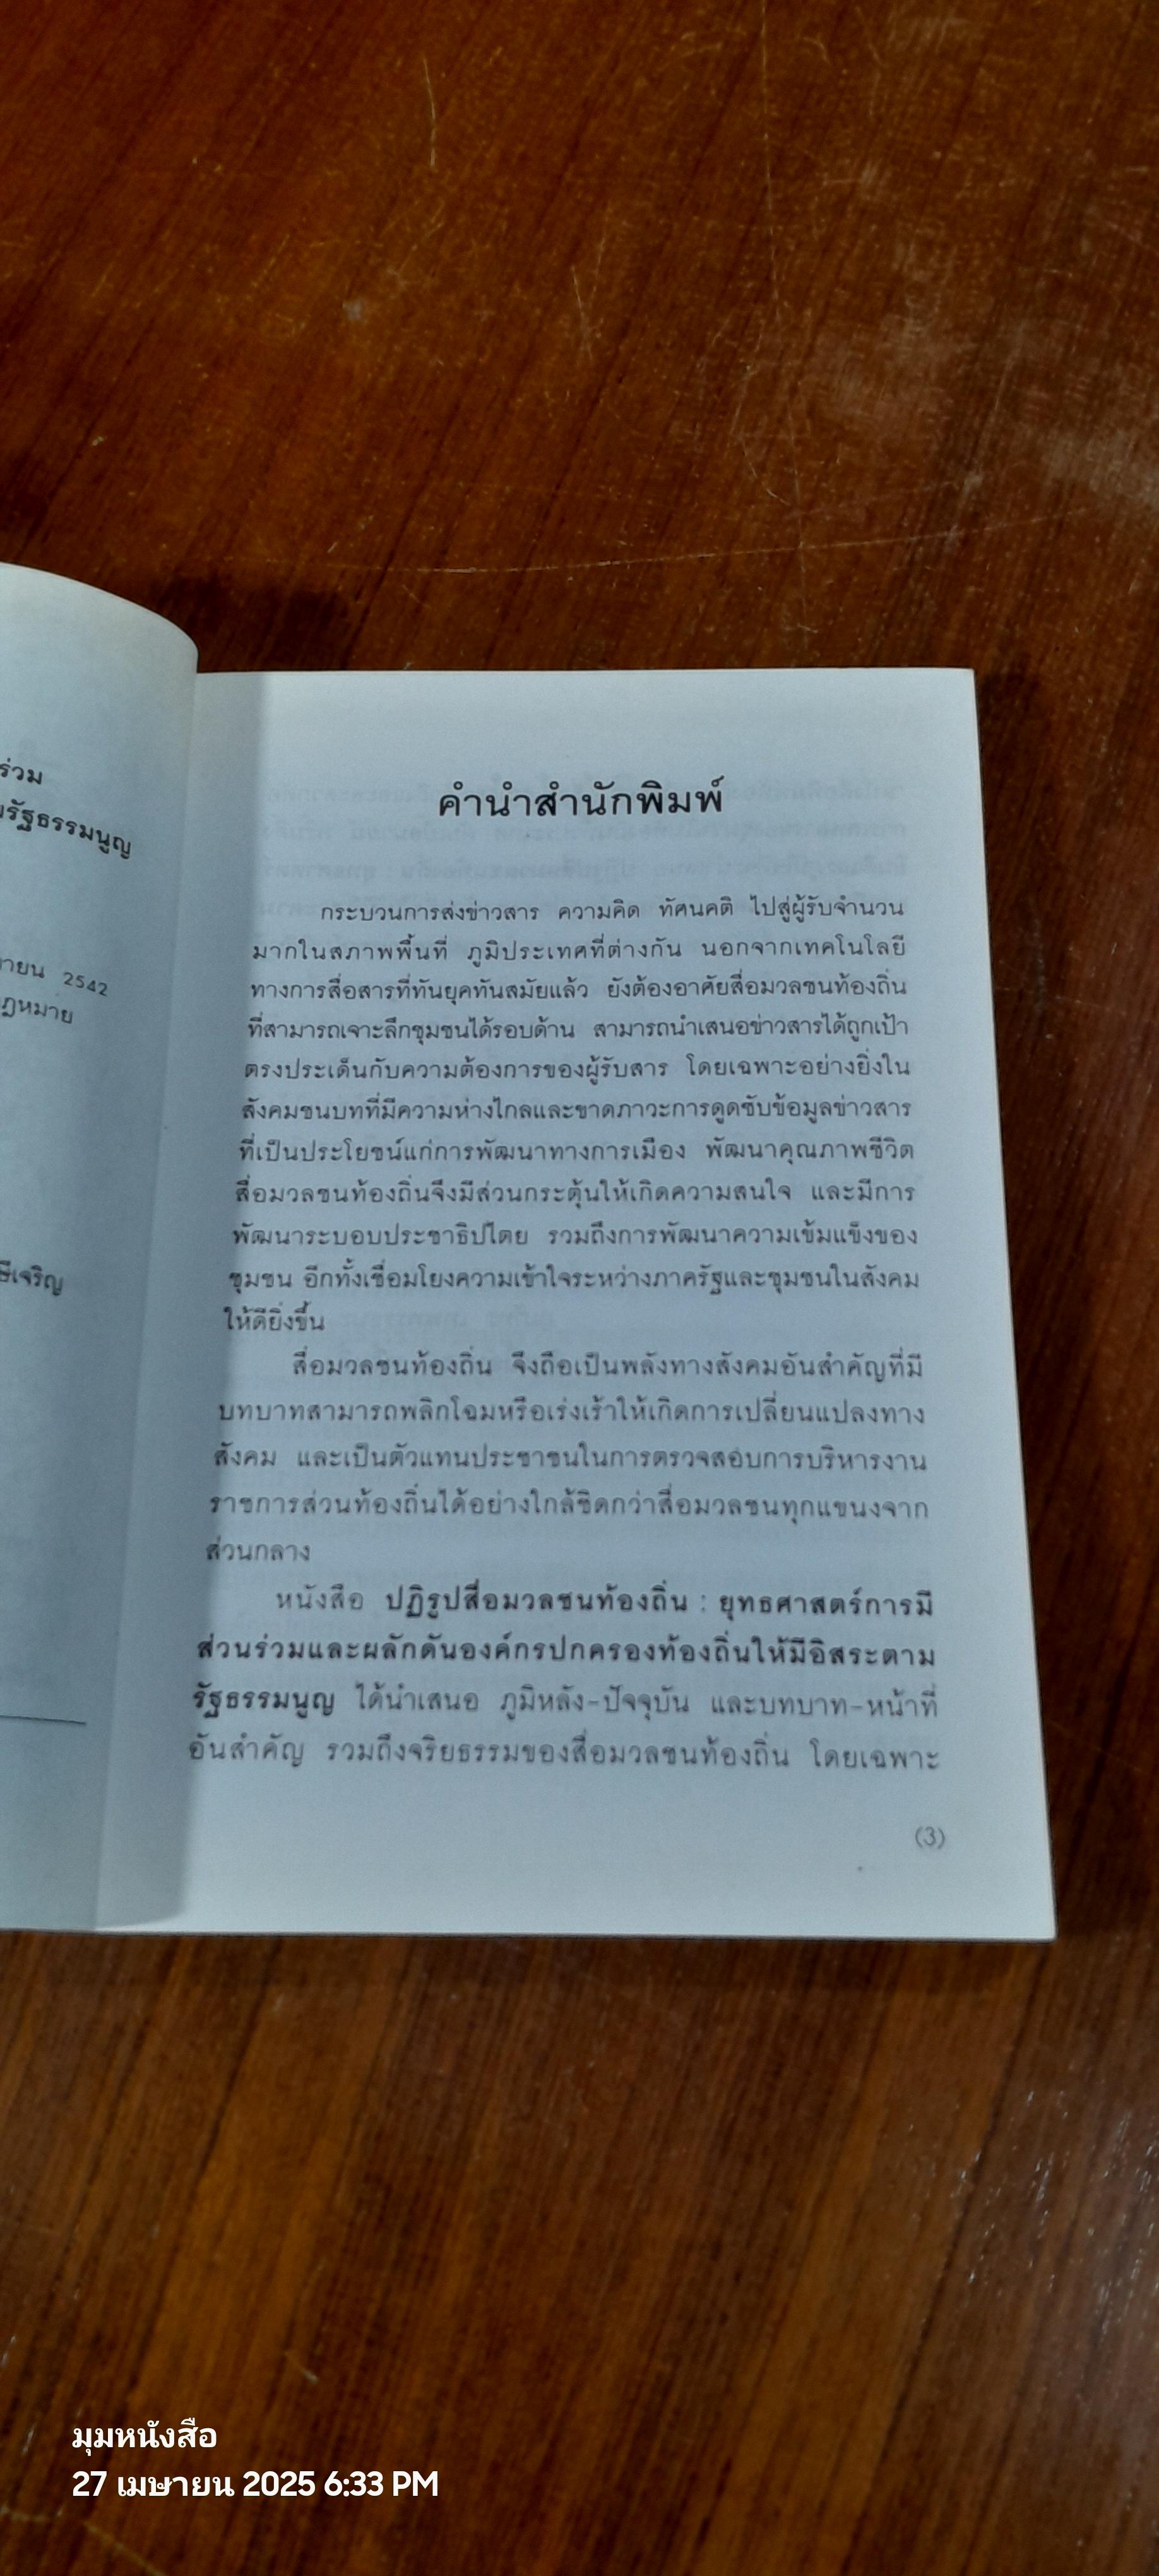 ร่วม
รัฐธรรมนูญ
ายน 2542
ฎหมาย
เจริญ
คำนำสำนักพิมพ์
กระบวนการส่งข่าวสาร ความคิด ทัศนคติ ไปสู่ผู้รับจำนวน
มากในสภาพพื้นที่ ภูมิประเทศที่ต่างกัน นอกจากเทคโนโลยี
ทางการสื่อสารที่ทันยุคทันสมัยแล้ว ยังต้องอาศัยสื่อมวลชนท้องถิ่น
ที่สามารถเจาะลึกชุมชนได้รอบด้าน สามารถนำเสนอข่าวสารได้ถูกเป้า
ตรงประเด็นกับความต้องการของผู้รับสาร โดยเฉพาะอย่างยิ่งใน
สังคมชนบทที่มีความห่างไกลและขาดภาวะการดูดซับข้อมูลข่าวสาร
ที่เป็นประโยชน์แก่การพัฒนาทางการเมือง พัฒนาคุณภาพชีวิต
สื่อมวลชนท้องถิ่นจึงมีส่วนกระตุ้นให้เกิดความสนใจ และมีการ
พัฒนาระบอบประชาธิปไตย รวมถึงการพัฒนาความเข้มแข็งของ
ชุมชน อีกทั้งเชื่อมโยงความเข้าใจระหว่างภาครัฐและชุมชนในสังคม
ให้ดียิ่งขึ้น
สื่อมวลชนท้องถิ่น จึงถือเป็นพลังทางสังคมอันสำคัญที่มี
บทบาทสามารถพลิกโฉมหรือเร่งเร้าให้เกิดการเปลี่ยนแปลงทาง
สังคม และเป็นตัวแทนประชาชนในการตรวจสอบการบริหารงาน
ราชการส่วนท้องถิ่นได้อย่างใกล้ชิดกว่าสื่อมวลชนทุกแขนงจาก
ส่วนกลาง
หนังสือ ปฏิรูปสื่อมวลชนท้องถิ่น : ยุทธศาสตร์การมี
ส่วนร่วมและผลักดันองค์กรปกครองท้องถิ่นให้มีอิสระตาม
รัฐธรรมนูญ ได้นำเสนอ ภูมิหลัง-ปัจจุบัน และบทบาท-หน้าที่
อันสำคัญ รวมถึงจริยธรรมของสื่อมวลชนท้องถิ่น โดยเฉพาะ
(3)
มุมหนังสือ
27 เมษายน 2025 6:33 PM